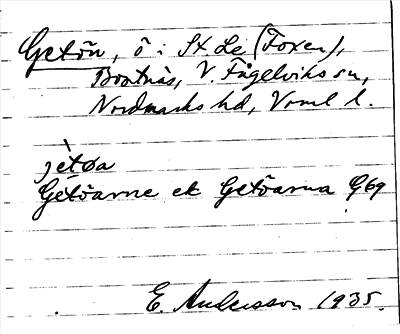 Getön, ö i St. Le (Foxen),
Bootnäs, V. Fågelviks sn,
Nordmarks hd, Vrml l.
jètøa
Getöarne ek Getöarna G69
E. Andersson 1935.